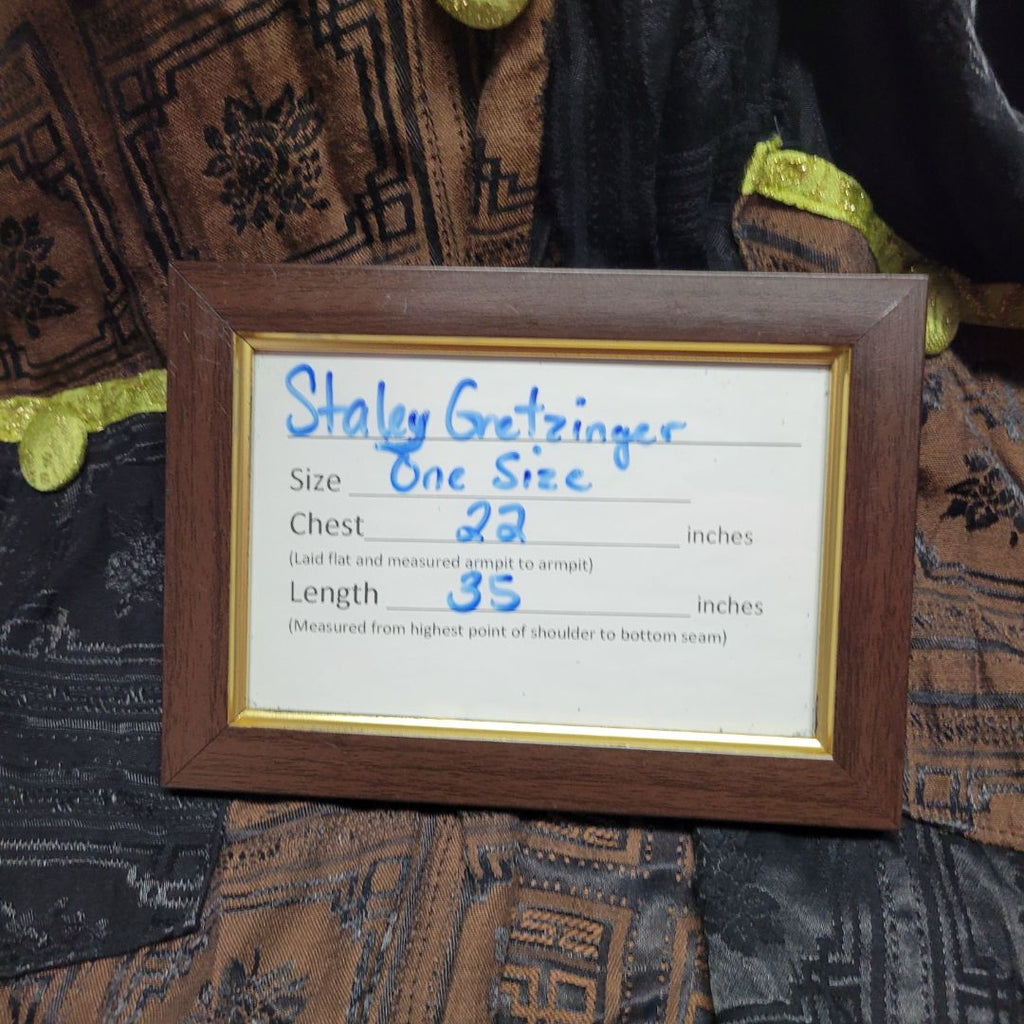 Staley Gretzinger
Size One Size
Chest 22 inches
(Laid flat and measured armpit to armpit)
Length 35 inches
(Measured from highest point of shoulder to bottom seam)